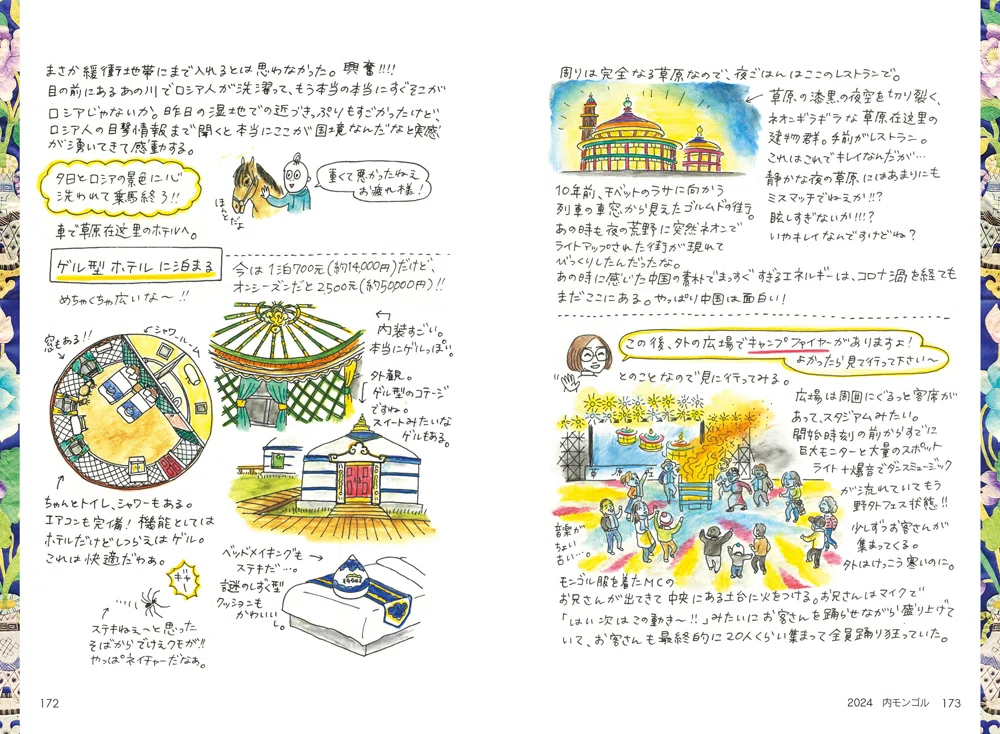 まさか緩衝地帯にまで入れるとは思わなかった。興奮!!!!
目の前にあるあの川でロシア人が洗濯って、もう本当の本当にすぐそこが
ロシアじゃないか。昨日の湿地での近づきっぷりもすごかったけど、
ロシア人の目撃情報まで聞くと本当にここが国境なんだなと実感
が湧いてきて感動する。
夕日とロシアの景色に心
洗われて乗馬終了!!
ほんとだよ
重くて悪かったねぇ
お疲れ様!
車で草原在这里のホテルへ。
ゲル型ホテルに泊まる
今は1泊700元(約14,000円)だけど、
オンシーズンだと2,500元(約50,000円)!!
めちゃくちゃ広いな〜!!
窓もある!!
シャワールーム
内装すごい。
本当にゲルっぽい。
外観。
ゲル型のコテージ
ですね。
スイートみたいな
ゲルもある。
ちゃんとトイレ、シャワーもある。
エアコンも完備!機能としては
ホテルだけどしつらえはゲル。
これは快適だわぁ。
ギャー
ステキねぇ〜と思った
そばからでけぇクモが!!
やっぱネイチャーだなぁ。
ベッドメイキングも
ステキだ…。
謎のしずく型
クッションも
かわいいし。
172
周りは完全なる草原なので、夜ごはんはここのレストランで。
草原の漆黒の夜空を切り裂く、
ネオンギラギラな草原在这里の
建物群。手前がレストラン。
これはこれでキレイなんだが…
静かな夜の草原にはあまりにも
ミスマッチでねぇか!!?
眩しすぎないか!!!?
いやキレイなんですけどね?
10年前、チベットのラサに向かう
列車の車窓から見えたゴルムドの街。
あの時も夜の荒野に突然ネオンで
ライトアップされた街が現れて
びっくりしたんだったな。
あの時に感じた中国の素朴でまっすぐすぎるエネルギーは、コロナ渦を経ても
まだここにある。やっぱり中国は面白い!
この後、外の広場でキャンプファイヤーがありますよ!
よかったら見て行って下さい〜
とのことなので見に行ってみる。
広場は周囲にぐるっと客席が
あって、スタジアムみたい。
開始時刻の前からすでに
巨大モニターと大量のスポット
ライト+爆音でダンスミュージック
がシ流れていてもう
野外フェス状態!!
少しずつお客さんが
集まってくる。
外はけっこう寒いのに。
音楽が
ちょい
古い…。
モンゴル服を着たMCの
お兄さんが出てきて中央にある土台に火をつける。お兄さんはマイクで
「はい次はこの動き〜!!」みたいにお客さんを踊らせながら盛り上げて
いて、お客さんも最終的に20人くらい集まって全員踊り狂っていた。
2024 内モンゴル 173